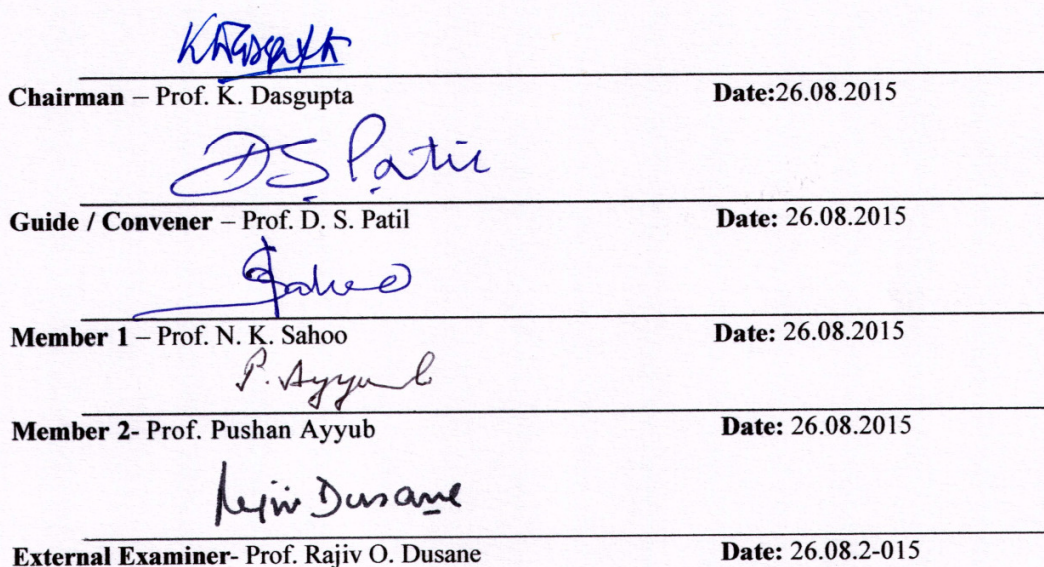 KDasgupta
Chairman – Prof. K. Dasgupta Date:26.08.2015
DS Patil
Guide / Convener – Prof. D. S. Patil Date: 26.08.2015
Sahoo
Member 1 – Prof. N. K. Sahoo Date: 26.08.2015
P. Ayyub
Member 2- Prof. Pushan Ayyub Date: 26.08.2015
Rajiv Dusane
External Examiner- Prof. Rajiv O. Dusane Date: 26.08.2-015